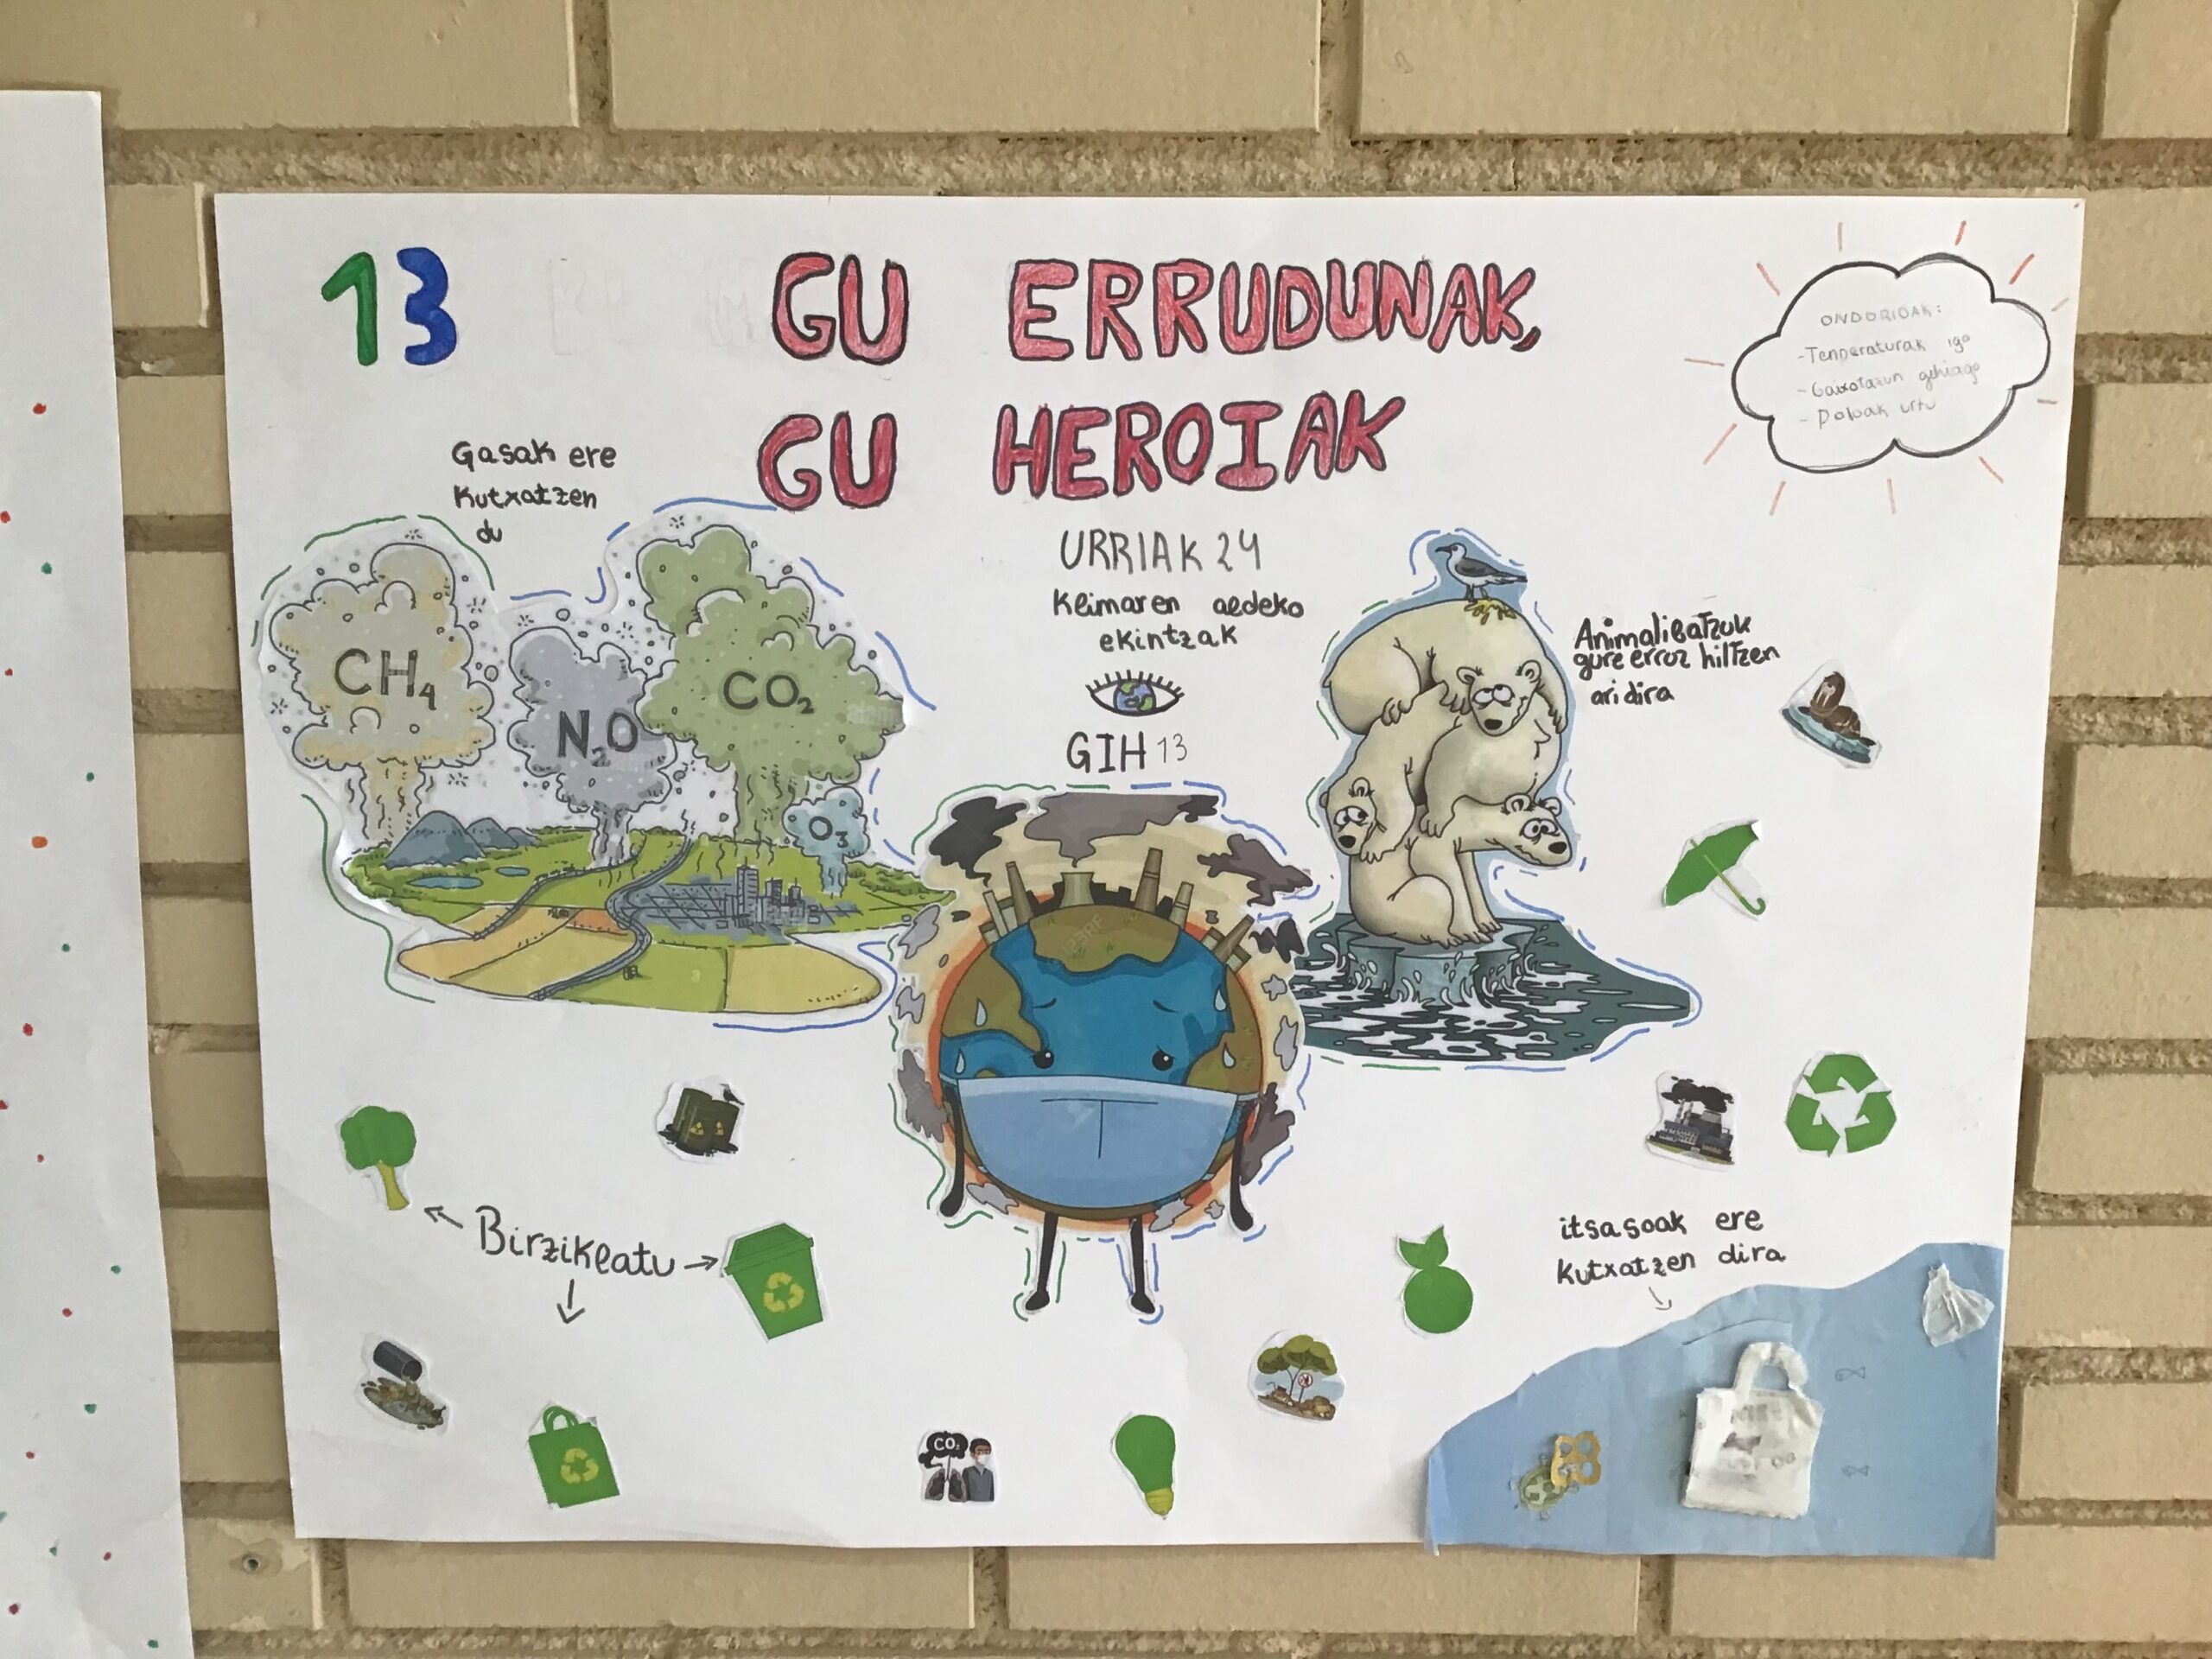 13
GU ERRUDUNAK,
GU HEROIAK
ONDORIOAK:
-Tenperaturak igo
-Gaixotasun gehiago
-Poloak urtu
Gasak ere
kutxatzen
du
URRIAK 24
klimaren aldeko
ekintzak
GIH 13
CH4
N2O
CO2
O3
Animali batzuk
gure erruz hiltzen
ari dira
123RF
Birziklatu
itsasoak ere
kutxatzen dira
CO2